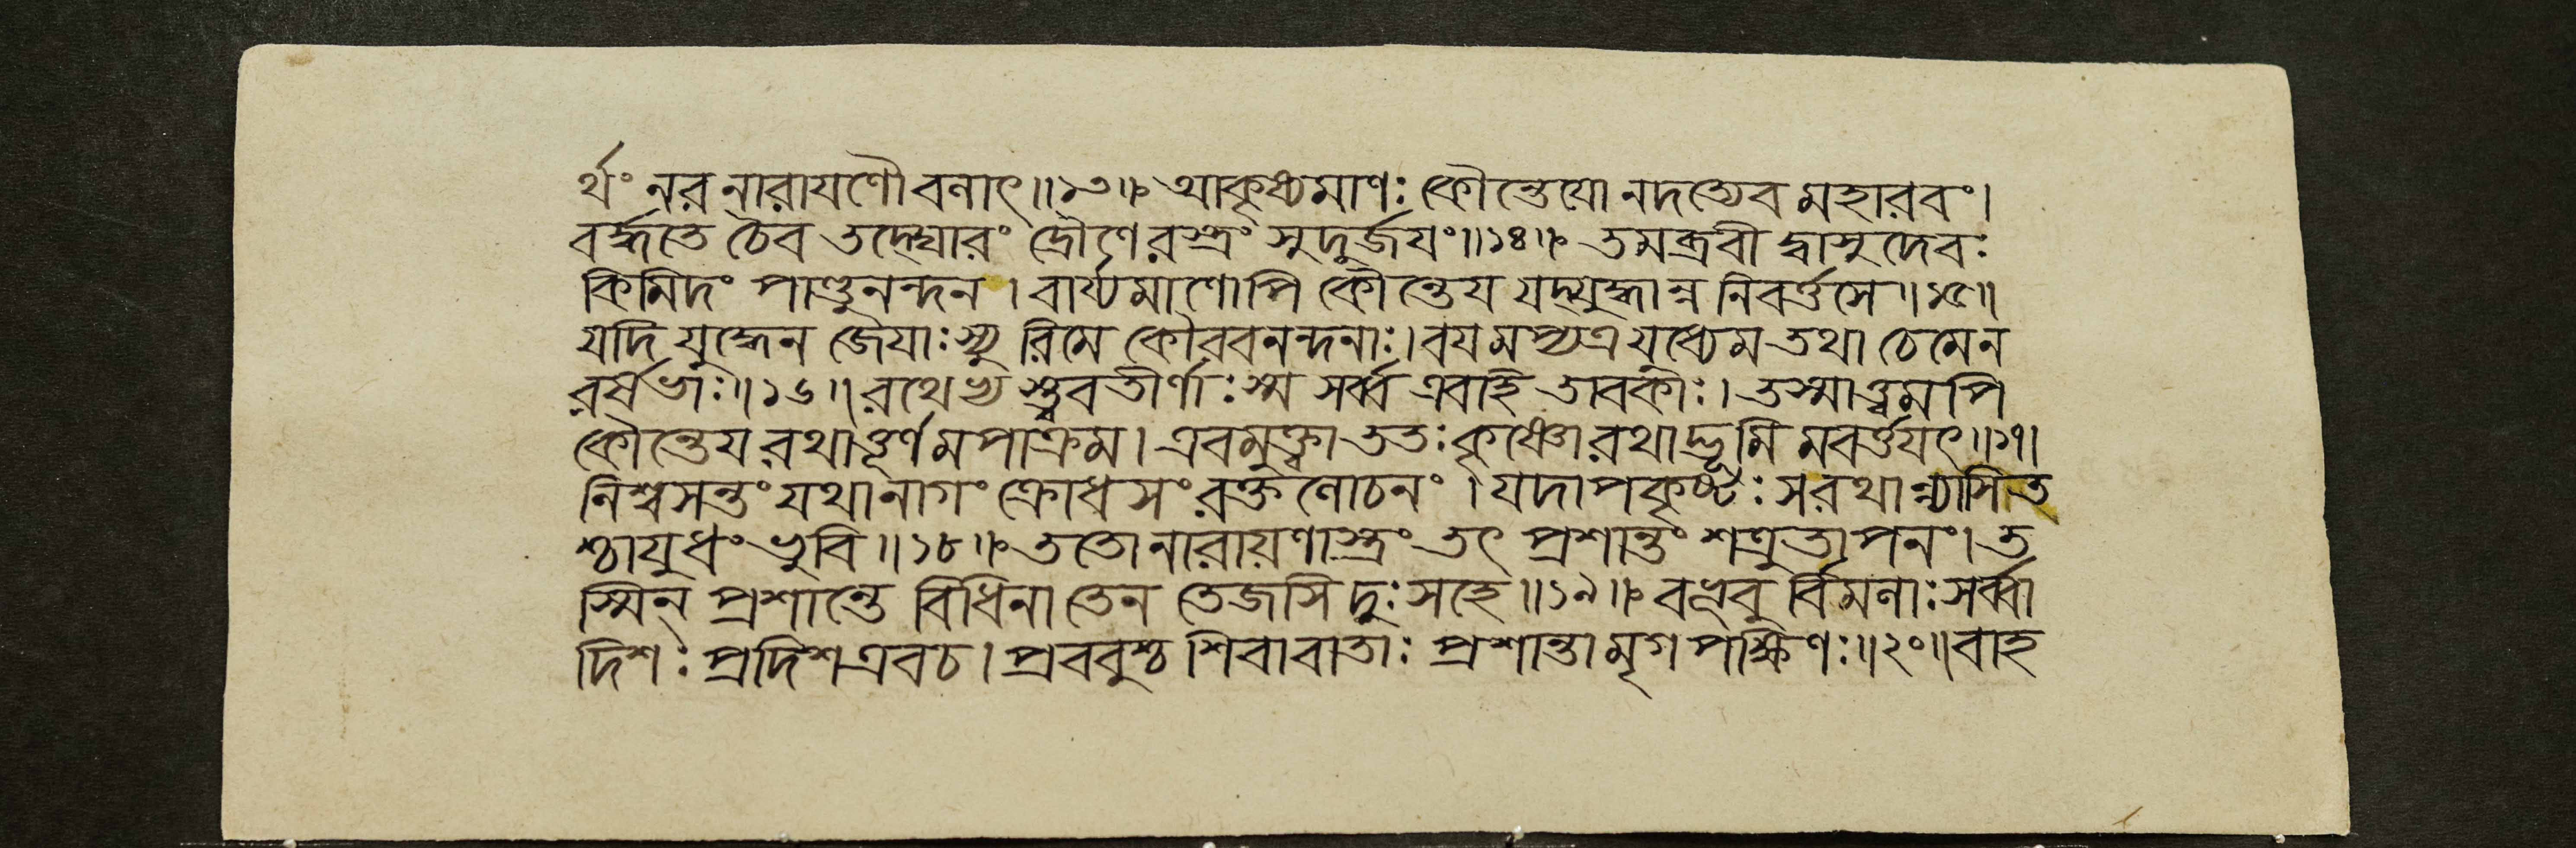 র্থং নরনারাযণৌ বনাৎ॥১৩॥ আকৃষ্যমাণঃ কৌন্তেযো নদত্যেব মহারবং।
বর্দ্ধতে চৈব তদ্ঘোরং দ্রৌণেরস্ত্রং সুদুর্জযং॥১৪॥ তমব্রবীদ্বাসুদেবঃ
কিমিদং পাণ্ডুনন্দন। বার্য্যমাণোপি কৌন্তেয যদ্যুদ্ধান্ন নিবর্ত্তসে॥১৫॥
যদি যুদ্ধেন জেযাঃ স্যুরিমে কৌরবনন্দনাঃ। বযমপ্যত্র যুধ্যেম তথা চেমেন
রর্ষভাঃ॥১৬॥ রথেভ্যস্ত্ববতীর্ণাঃ স্ম সর্ব্ব এবহি তাবকাঃ। তস্মাত্ত্বমপি
কৌন্তেয রথাত্তূর্ণমপাক্রম। এবমুক্ত্বা ততঃ কৃষ্ণো রথাদ্ভূমিমবর্ত্তযৎ॥১৭।
নিশ্বসন্তং যথা নাগং ক্রোধসংরক্তলোচনং। যদাপকৃষ্টঃ স রথান্ন্যাসিত
শ্চাযুধং ভুবি॥১৮॥ ততো নারায়ণাস্ত্রং তৎ প্রশান্তং শত্রুতাপনং। ত
স্মিন্ প্রশান্তে বিধিনা তেন তেজসি দুঃসহে॥১৯॥ বভূবুর্বিমলাঃ সর্ব্বা
দিশঃ প্রদিশ এবচ। প্রববুশ্চ শিবা বাতাঃ প্রশান্তা মৃগপক্ষিণঃ॥২০॥ বাহ